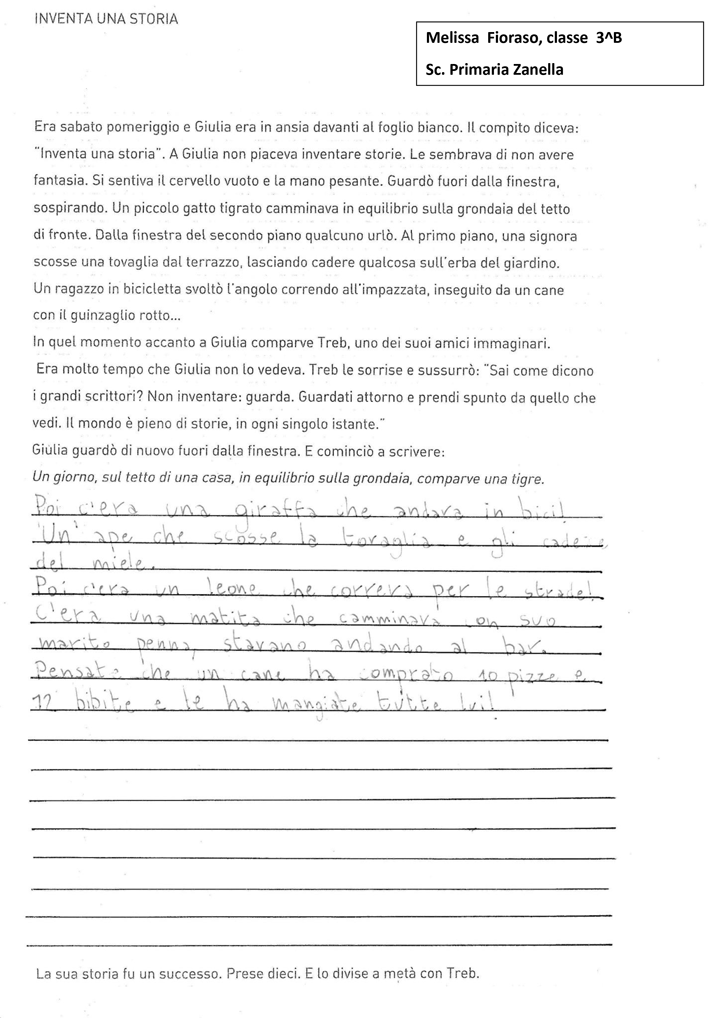 INVENTA UNA STORIA
Melissa Fioraso, classe 3^B
Sc. Primaria Zanella
Era sabato pomeriggio e Giulia era in ansia davanti al foglio bianco. Il compito diceva:
"Inventa una storia". A Giulia non piaceva inventare storie. Le sembrava di non avere
fantasia. Si sentiva il cervello vuoto e la mano pesante. Guardò fuori dalla finestra,
sospirando. Un piccolo gatto tigrato camminava in equilibrio sulla grondaia del tetto
di fronte. Dalla finestra del secondo piano qualcuno urlò. Al primo piano, una signora
scosse una tovaglia dal terrazzo, lasciando cadere qualcosa sull'erba del giardino.
Un ragazzo in bicicletta svoltò l'angolo correndo all'impazzata, inseguito da un cane
con il guinzaglio rotto...
In quel momento accanto a Giulia comparve Treb, uno dei suoi amici immaginari.
Era molto tempo che Giulia non lo vedeva. Treb le sorrise e sussurrò: "Sai come dicono
i grandi scrittori? Non inventare: guarda. Guardati attorno e prendi spunto da quello che
vedi. Il mondo è pieno di storie, in ogni singolo istante."
Giulia guardò di nuovo fuori dalla finestra. E cominciò a scrivere:
Un giorno, sul tetto di una casa, in equilibrio sulla grondaia, comparve una tigre.
Poi c'era una giraffa che andava in bici!
Un'ape che scosse la tovaglia e gli cadeva
del miele.
Poi c'era un leone che correva per le strade!
C'era una matita che camminava con suo
marito penna, stavano andando al bar.
Pensate che un cane ha comprato 10 pizze e
12 bibite e le ha mangiate tutte lui!
La sua storia fu un successo. Prese dieci. E lo divise a metà con Treb.